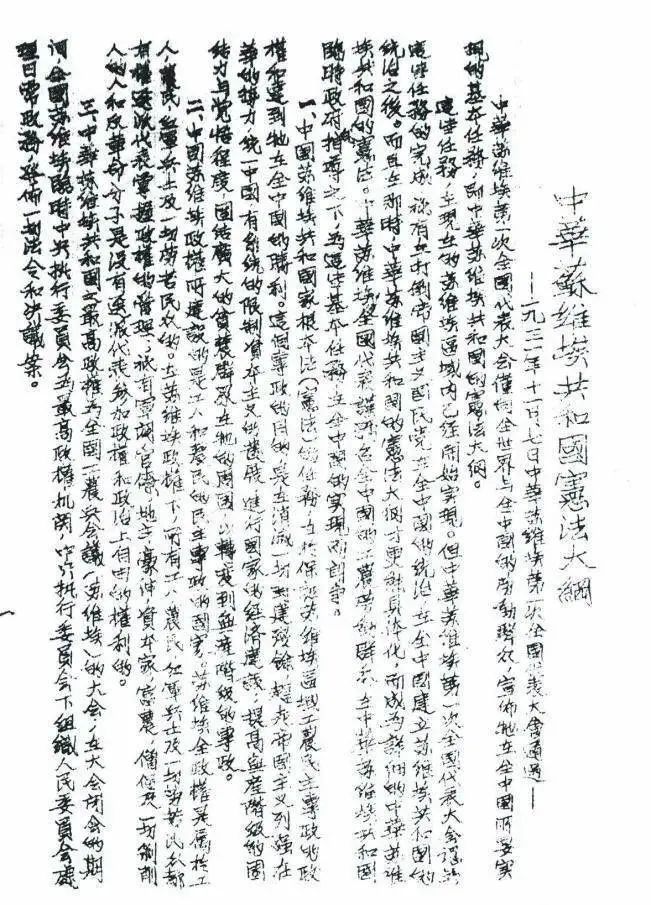 中華蘇維埃共和國憲法大綱
—一九三一年十一月七日中華苏维埃第一次全國代表大會通過—
中華苏维埃第一次全國代表大会謹向全世界与全中國的劳動群众,宣佈牠在全中國所要实
現的基本任務,即中華苏维埃共和國的憲法大綱。
這些任務,在現在的苏维埃區域内已经開始实現。但中華苏维埃第一次全國代表大会認為
這些任務的完成,祇有在打倒帝國主义國民党在全中國的统治,在全中國建立苏维埃共和國的
统治之後。而且在那時,中華苏维埃共和國的憲法大綱才更能具体化,而成為詳細的中華苏维
埃共和國的憲法。中華苏维埃全國代表大会謹號召全中國的工農劳動群众,在中華苏维埃共和國
臨時政府指導之下,為這些基本任務在全中國的实現而鬥争。
一、中國苏维埃共和國家根本法(憲法)的任務,在於保証苏维埃區域工農民主專政的政
權和達到牠在全中國的勝利。這個專政的目的,是在消滅一切封建殘餘,趕走帝國主义列強在
華的势力,统一中國,有系统的限制資本主义的發展,進行國家的经済建設,提高無產階級的團
结力与党悟程度,團结廣大的貧農群众在牠的周圍,以轉变到無產階級的專政。
二、中國苏维埃政權所建設的是工人和農民的民主專政的國家。苏维埃全政權是屬於工
人,農民,紅軍兵士及一切劳苦民众的。在苏维埃政權下,所有工人,農民,紅軍兵士及一切劳苦民众都
有權選派代表掌握政權的管理,祇有軍閥,官僚,地主,豪紳,資本家,富農,僧侣及一切剝削
人的人和反革命分子是没有選派代表参加政權和政治上自由的權利的。
三、中華苏维埃共和國之最高政權為全國工農兵会議(苏维埃)的大会,在大会閉会的期
间,全國苏维埃臨時中央执行委員会為最高政權机関,中央执行委員会下組織人民委員会處
理日常政務,發佈一切法令和决議案。